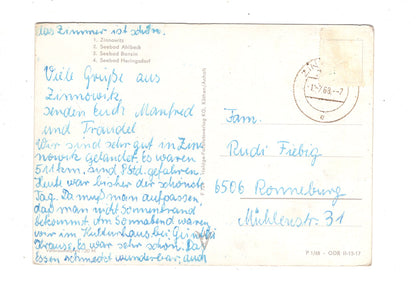 das Zimmer ist schön.
1. Zinnowitz
2. Seebad Ahlbeck
3. Seebad Bansin
4. Seebad Heringsdorf
Viele Grüße aus
Zinnowitz
senden Euch Manfred
und Traudel
Wir sind sehr gut in Zin
nowitz gelandet. Es waren
511 km, sind 8 Std. gefahren
Heute war bisher der schönste
Tag. Da muß man aufpassen,
daß man nicht Sonnenbrand
bekommt. Am Sonnabend waren
wir im Kulturhaus bei
Krause, es war sehr schön. Das
Essen schmeckt wunderbar, auch
Fam.
Rudi Fiebig
6506 Ronneburg
Mühlenstr. 31